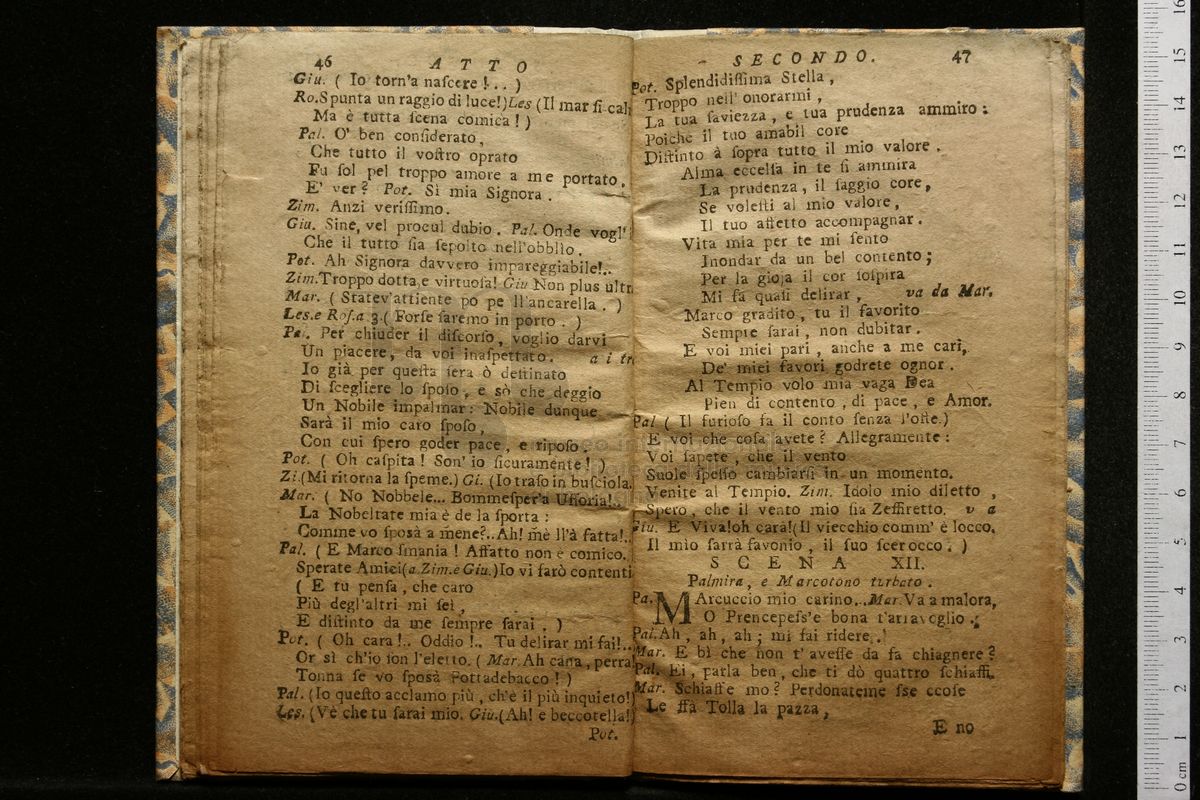 46 ATTO
Giu. ( Io torn'a naſcere !.. )
Ro. Spunta un raggio di luce!) Les (Il mar ſi cal
Ma è tutta ſcena comica ! )
Pal. O' ben conſiderato,
Che tutto il voſtro oprato
Fu ſol pel troppo amore a me portato.
E' ver ? Pot. Sì mia Signora .
Zim. Anzi veriſſimo.
Giu. Sine, vel procul dubio . Pal. Onde vogl'
Che il tutto ſia ſepolto nell'obblìo.
Pot. Ah Signora davvero impareggiabile!..
Zim. Troppo dotta, e virtuoſa! Giu Non plus ultr
Mar. ( Statev'attiente po pe ll'ancarella . )
Les. e Roſ. a 3. ( Forſe ſaremo in porto . )
Pal. Per chiuder il diſcorſo, voglio darvi
Un piacere, da voi inaſpettato. a i tr
Io già per queſta ſera ò deſtinato
Di ſcegliere lo ſpoſo, e sò che deggio
Un Nobile impalmar : Nobile dunque
Sarà il mio caro ſpoſo,
Con cui ſpero goder pace, e ripoſo.
Pot. ( Oh caſpita ! Son' io ſicuramente ! )
Zi. (Mi ritorna la ſpeme.) Gi. (Io traſo in buſciola.
Mar. ( No Nobbele... Bommeſper'a Uſſoria!..
La Nobeltate mia è de la ſporta :
Comme vo ſposà a mene?.. Ah! mè ll'à fatta!..
Pal. ( E Marco ſmania ! Affatto non è comico.
Sperate Amici (a Zim. e Giu.) Io vi farò contenti
( E tu penſa, che caro
Più degl'altri mi ſei,
E diſtinto da me ſempre ſarai . )
Pot. ( Oh cara !.. Oddio !.. Tu delirar mi fai!..
Or sì ch'io ſon l'eletto. ( Mar. Ah cana, perra
Tonna ſe vo ſposà Pottadebacco ! )
Pal. (Io queſto acclamo più, ch'è il più inquieto!)
Les. (Vè che tu ſarai mio. Giu. (Ah! e beccotella!)
Pot.
SECONDO. 47
Pot. Splendidiſſima Stella,
Troppo nell' onorarmi,
La tua ſaviezza, e tua prudenza ammiro :
Poichè il tuo amabil core
Diſtinto à ſopra tutto il mio valore.
Alma eccelſa in te ſi ammira
La prudenza, il ſaggio core,
Se voleſti al mio valore,
Il tuo affetto accompagnar.
Vita mia per te mi ſento
Inondar da un bel contento;
Per la gioja il cor ſoſpira
Mi fa quaſi delirar, va da Mar.
Marco gradito, tu il favorito
Sempre ſarai, non dubitar.
E voi miei pari, anche a me cari,
De' miei favori godrete ognor.
Al Tempio volo mia vaga Dea
Pien di contento, di pace, e Amor.
Pal ( Il furioſo fa il conto ſenza l'oſte.)
E voi che coſa avete ? Allegramente :
Voi ſapete, che il vento
Suole ſpeſſo cambiarſi in un momento.
Venite al Tempio. Zim. Idolo mio diletto,
Spero, che il vento mio ſia Zeffiretto. v a
Giu. E Viva! oh cara! (Il viecchio comm' è locco.
Il mio ſarrà favonio, il ſuo ſcerocco. )
SCENA XII.
Palmira, e Marcotono turbato.
Pa. MArcuccio mio carino... Mar. Va a malora,
O Prencepeſs'e bona t'arraveglio.
Pal. Ah, ah, ah; mi fai ridere.
Mar. E bì che non t' aveſſe da fa chiagnere?
Pal. Ei, parla ben, che ti dò quattro ſchiaffi.
Mar. Schiaffe mo ? Perdonateme ſse ccoſe
Le ffà Tolla la pazza,
E no